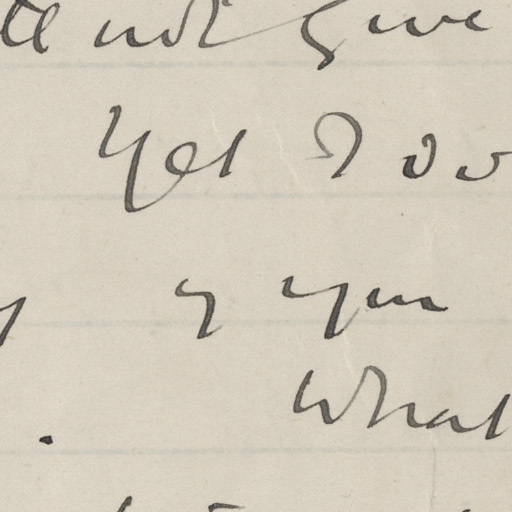 not give
Yet I do
of you
What